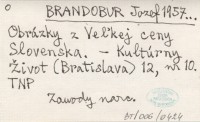 BRANDOBUR Jozef 1957...
Obrázky z Veľkej ceny
Slovenska. - Kultúrny
Život (Bratislava) 12, nr 10.
TNP
Zawody narc.